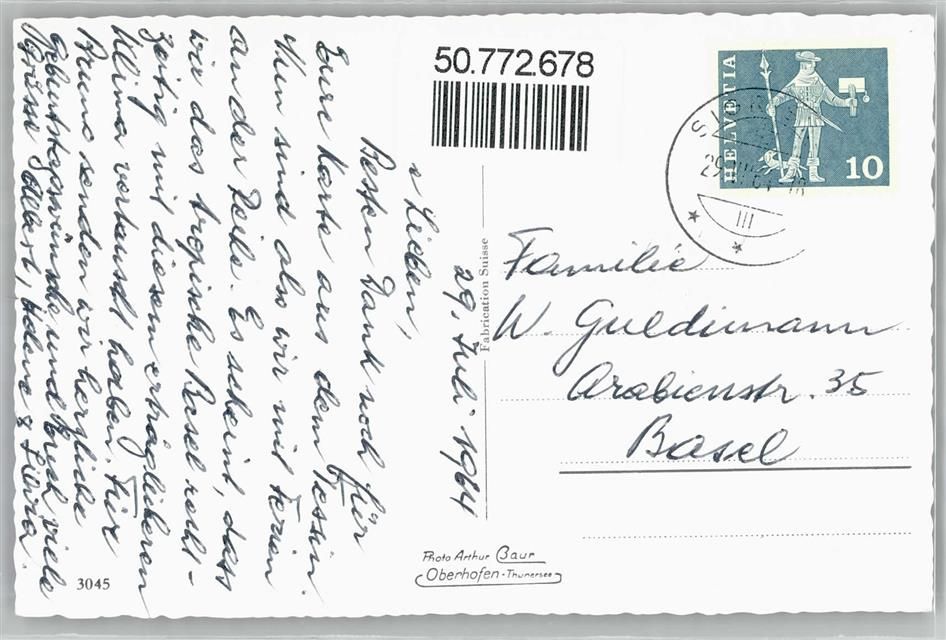 50.772.678
HELVETIA
10
29. Juli 1964
Lieben,
Besten Dank noch für
Eure Karte aus dem Tessin.
Nun sind also wir mit Ferien
an der Reihe. Es scheint, dass
wir das tropische Basel recht-
zeitig mit diesem erträglicheren
Klima vertauscht haben. Für
Bruno senden wir herzliche
Geburtstagswünsche und Euch viele
Grüsse Albert, Helene & Silvia.
Fabrication Suisse
Familie
W. Guldimann
Arabienstr. 35
Basel
Photo Arthur Baur
Oberhofen-Thunersee
3045